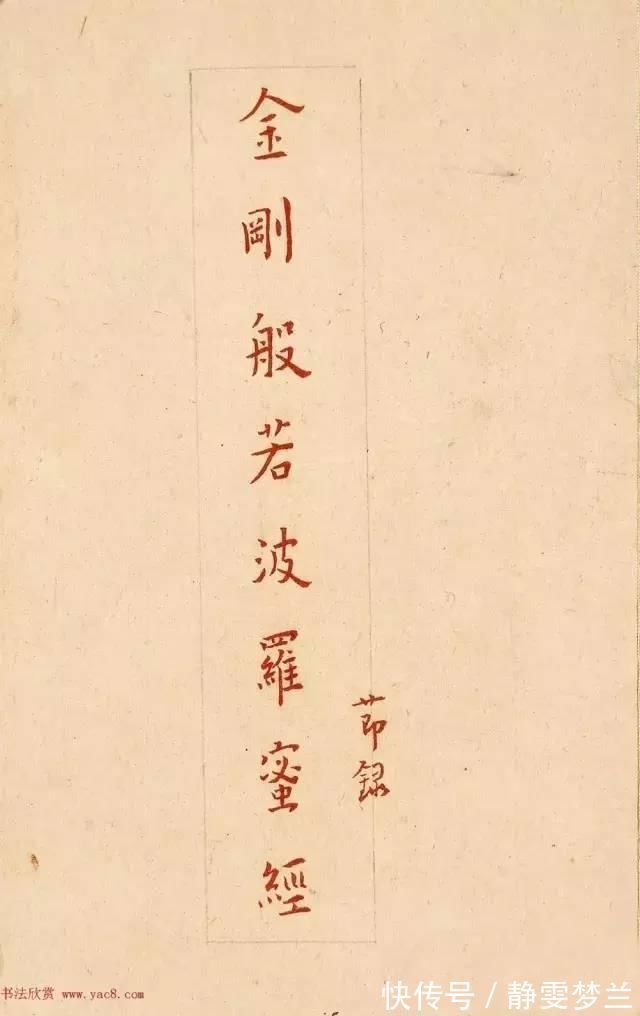 金剛般若波羅蜜經
莭録
书法欣赏 www.yac8.com
快传号/静雯梦兰